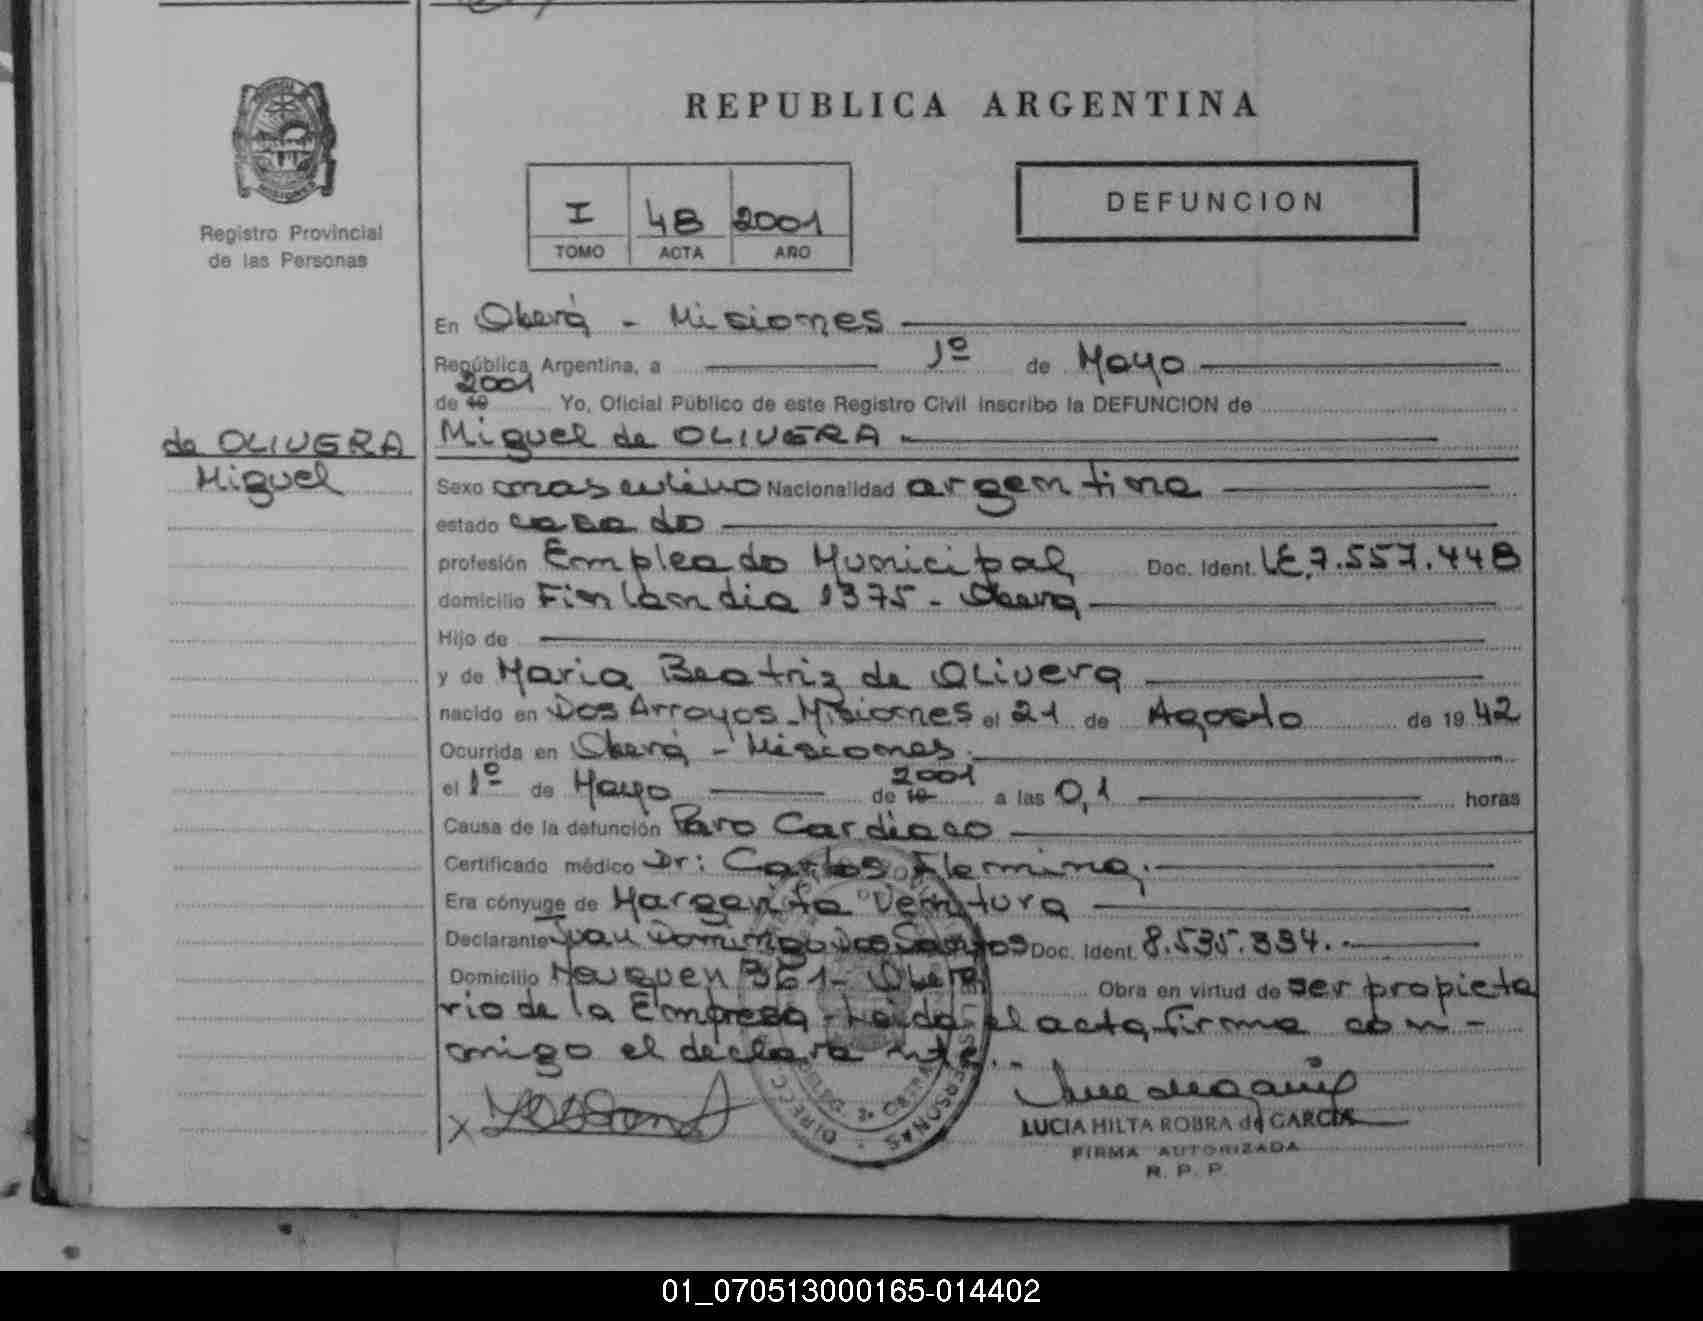 REPUBLICA ARGENTINA
Registro Provincial
de las Personas
I 48 2001
TOMO ACTA AÑO
DEFUNCION
En Oberá - Misiones
República Argentina, a 1º de Mayo
2001
de 19 Yo, Oficial Público de este Registro Civil inscribo la DEFUNCION de
de OLIVERA
Miguel
Miguel de OLIVERA
Sexo masculino Nacionalidad argentina
estado casado
profesión Empleado Municipal Doc. Ident. LE. 7.557.448
domicilio Finlandia 1375 - Oberá
Hijo de
y de Maria Beatriz de Olivera
nacido en Dos Arroyos - Misiones el 21 de Agosto de 19 42
Ocurrida en Oberá - Misiones.
el 1º de Mayo de 19 2001 a las 0,1 horas
Causa de la defunción Paro Cardiaco
Certificado médico Dr: Carlos Fleming.
Era cónyuge de Margarita Ventura
Declarante Juan Domingo Dos Santos Doc. Ident. 8.535.334.
Domicilio Neuquen 361 - Oberá Obra en virtud de ser propieta
rio de la Empresa - Leida el acta firma con-
migo el declarante.
X
LUCIA HILTA ROBRA de GARCIA
FIRMA AUTORIZADA
R. P. P.
01_070513000165-014402